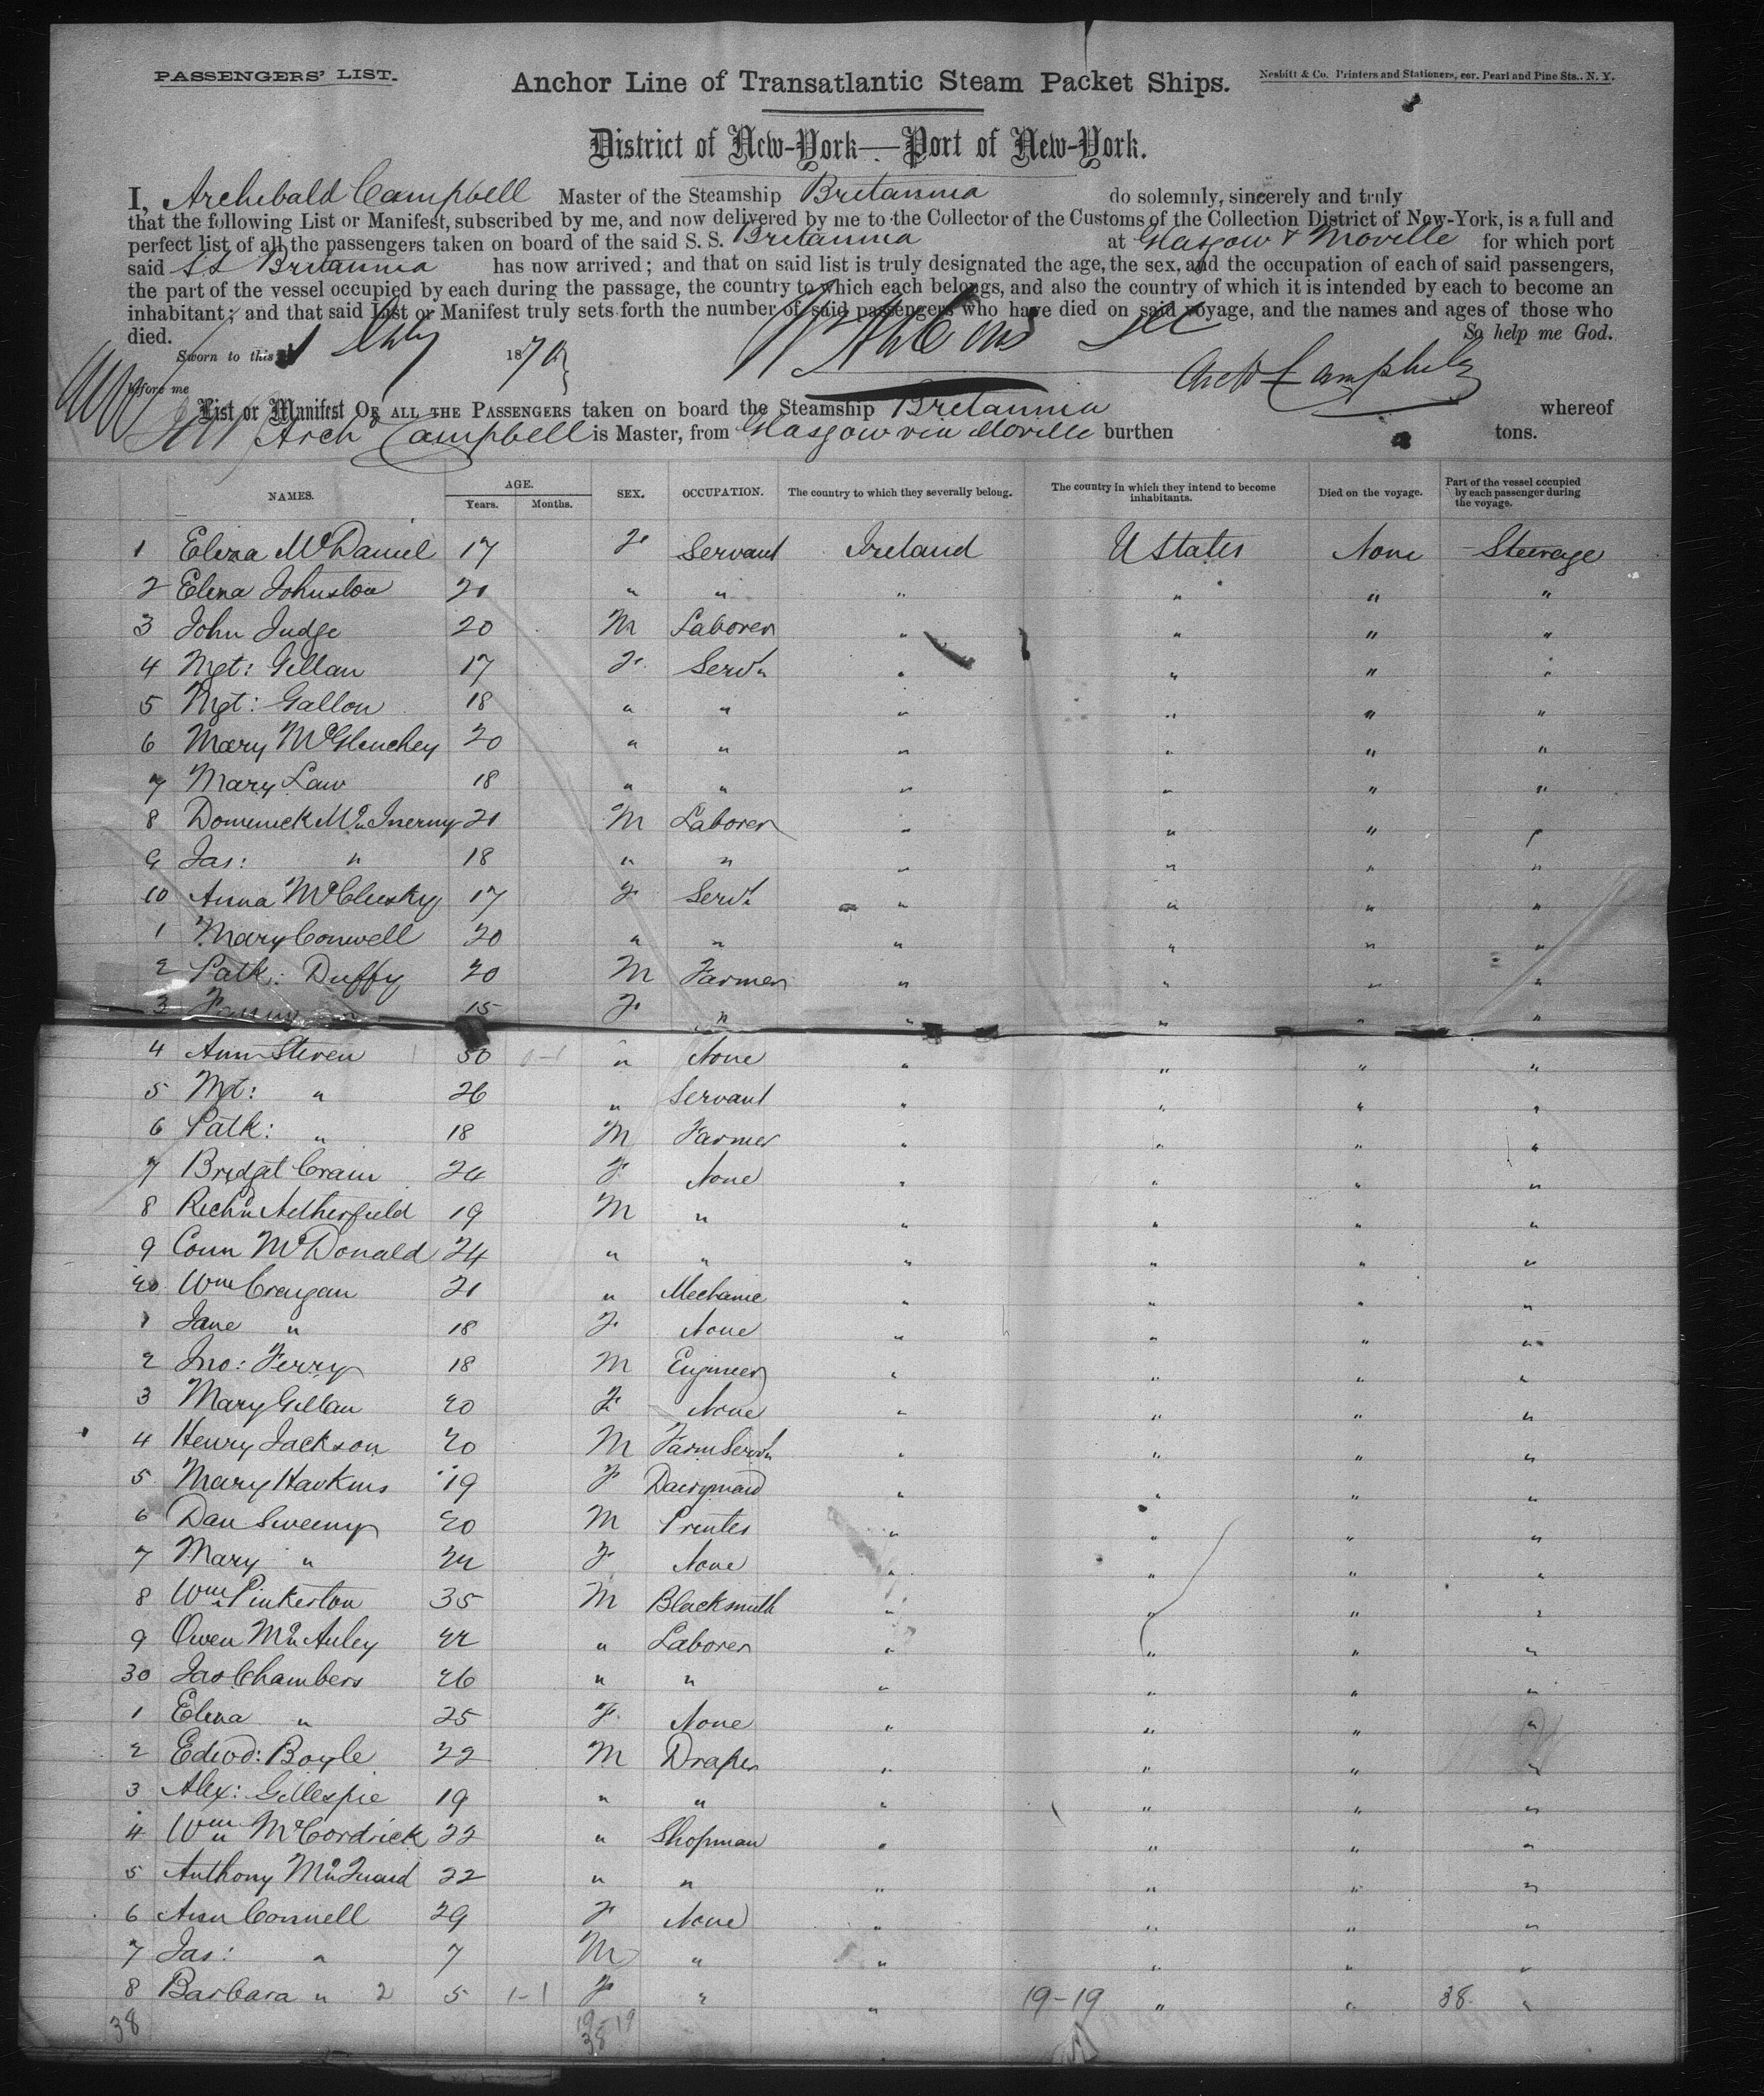 PASSENGERS' LIST.
Anchor Line of Transatlantic Steam Packet Ships.
Nesbitt & Co. Printers and Stationers, cor. Pearl and Pine Sts., N. Y.
District of New-York—Port of New-York.
I, Archibald Campbell Master of the Steamship Britannia do solemnly, sincerely and truly
that the following List or Manifest, subscribed by me, and now delivered by me to the Collector of the Customs of the Collection District of New-York, is a full and
perfect list of all the passengers taken on board of the said S. S. Britannia at Glasgow & Moville for which port
said SS Britannia has now arrived; and that on said list is truly designated the age, the sex, and the occupation of each of said passengers,
the part of the vessel occupied by each during the passage, the country to which each belongs, and also the country of which it is intended by each to become an
inhabitant; and that said List or Manifest truly sets forth the number of said passengers who have died on said voyage, and the names and ages of those who
died. So help me God.
Sworn to this 1 1870
before me Archd Campbell
List or Manifest OF ALL THE PASSENGERS taken on board the Steamship Britannia whereof
Archd Campbell is Master, from Glasgow via Moville burthen tons.
NAMES. AGE. Years. Months. SEX. OCCUPATION. The country to which they severally belong. The country in which they intend to become inhabitants. Died on the voyage. Part of the vessel occupied by each passenger during the voyage.
1 Eliza McDaniel 17 F Servant Ireland U States None Steerage
2 Eliza Johnston 21 " " " " " "
3 John Judge 20 M Laborer " " " "
4 Mgt: Gillan 17 F Servt " " " "
5 Mgt: Gallon 18 " " " " " "
6 Mary McGlinchey 20 " " " " " "
7 Mary Law 18 " " " " " "
8 Domenick McInerny 21 M Laborer " " " "
9 Jas: " 18 " " " " " "
10 Anna McClusky 17 F Servt " " " "
1 Mary Conwell 20 " " " " " "
2 Patk: Duffy 20 M Farmer " " " "
3 " 15 F " " " " "
4 Ann Steven 50 0-1 " None " " " "
5 Mgt: " 26 " Servant " " " "
6 Patk: " 18 M Farmer " " " "
7 Bridget Crain 24 F None " " " "
8 Richd Netherfield 19 M " " " " "
9 Conn McDonald 24 " " " " " "
20 Wm Creugan 21 " Mechanic " " " "
1 Jane " 18 F None " " " "
2 Jno: Ferry 18 M Engineer " " " "
3 Mary Gillan 20 F None " " " "
4 Henry Jackson 20 M Farm Servt " " " "
5 Mary Hawkins 19 F Dairymaid " " " "
6 Dan Sweeny 20 M Printer " " " "
7 Mary " 22 F None " " " "
8 Wm Pinkerton 35 M Blacksmith " " " "
9 Owen McAuley 22 " Laborer " " " "
30 Jas Chambers 26 " " " " " "
1 Eliza " 25 F None " " " "
2 Edwd: Boyle 22 M Draper " " " "
3 Alex: Gillespie 19 " " " " " "
4 Wm McCordrick 22 " Shopman " " " "
5 Anthony McQuaid 22 " " " " " "
6 Ann Connell 29 F None " " " "
7 Jas: " 7 M " " " " "
8 Barbara " 2 5 1-1 F " " 19-19 " " 38 "
38 19-19
38